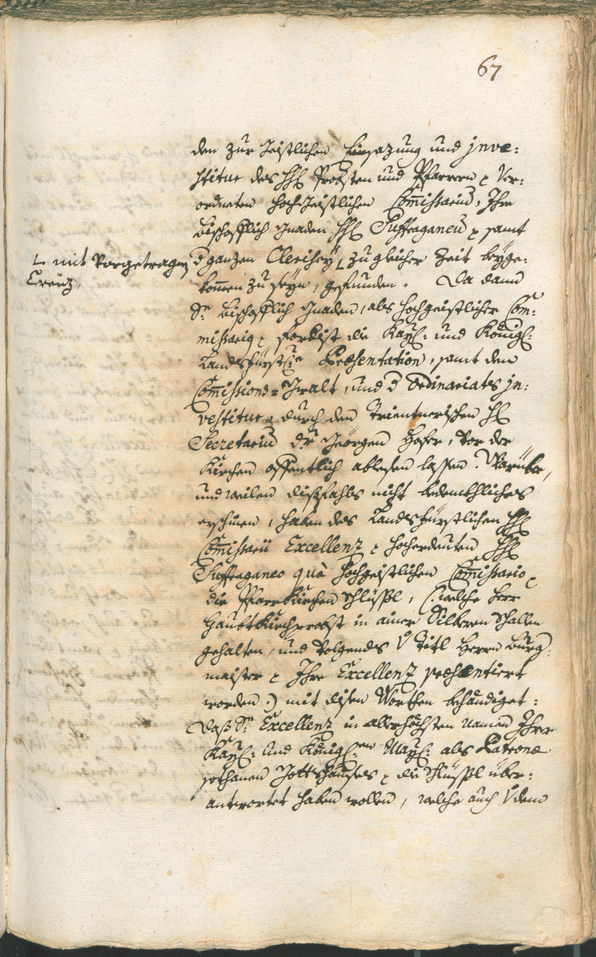 67
den zur Geistlichen Einsazung und inve=
stitur des HH: Probsten und Pfarrern p Ver=
ordneten hochgeistlichen Commissarius, Ihre
Bischofflich Gnaden HH: Suffraganeus p samt
d ganzen Clerisey zugleicher Zeit beyge=
∟ mit Vorgetragen
Creuz.
kommen zu seyn, gefunden. Da dann
Sr: Bischofflich Gnaden, als hochgeistlicher Com=
missarius p die Kayl: und Königl:
Landsfürstl: Præsentation, samt dem
Commissions=Gwalt, und d Ordinariats in=
vestitur durch den Trientnerischen H:
Secretarius Dr: Georgen Hofer, vor der
Kirchen offentlich ablesen lassen. Warüber,
und weilen dißfahls nicht bedenckliches
erschinen, haben des Landsfürstlichen HH:
Commissarii Excellenz p hocherdeuten HH:
Suffraganeo quà hochgeistlichen Commissario p
die Pfarrkirchen Schlüssl, (: welche Herr
Haubtkirchprobst in ainer Silbernen Schallen
gehalten, und volgends V Titl Herrn Burg=
maister p Ihre Excellenz præsentiert
worden :) mit disen Worthen behändiget:
Daß Sr: Excellenz in allerhöchsten namen Ihrer
Kayl: und Königl: May: als Patrono
sothanen Gottshauses p die Schlüssl über=
antwortet haben wollen, welche auch V dem